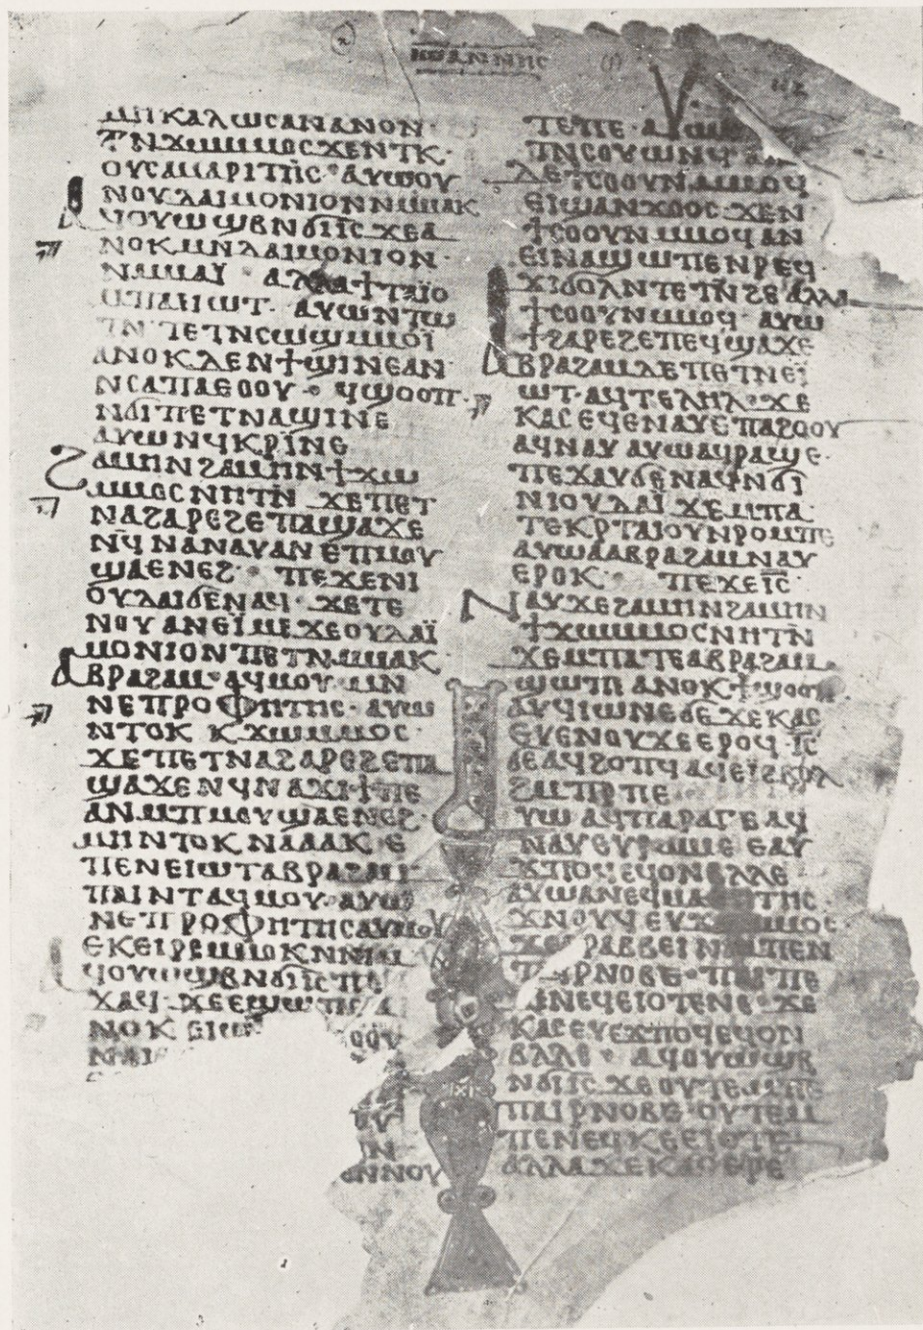 ⲓⲱⲁⲛⲛⲏⲥ
ⲙⲏⲕⲁⲗⲱⲥⲁⲛⲁⲛⲟⲛ·
ⲧⲛϫⲱⲙⲙⲟⲥϫⲉⲛⲧⲕ
ⲟⲩⲥⲁⲙⲁⲣⲓⲧⲏⲥ·ⲁⲩⲱⲟⲩ
ⲛⲟⲩⲇⲁⲓⲙⲟⲛⲓⲟⲛⲛⲙⲙⲁⲕ
ⲁϥⲟⲩⲱϣⲃⲛϭⲓⲓⲥ·ϫⲉⲁ
ⲛⲟⲕⲙⲛⲇⲁⲓⲙⲟⲛⲓⲟⲛ·
ⲛⲙⲙⲁⲓ· ⲁⲗⲗⲁϯⲧⲁⲓⲟ
ⲙⲡⲁⲉⲓⲱⲧ· ⲁⲩⲱⲛⲧⲱ
ⲧⲛ ⲧⲉⲧⲛⲥⲱϣⲙⲙⲟⲓ̈
ⲁⲛⲟⲕⲇⲉⲛϯϣⲓⲛⲉⲁⲛ·
ⲛⲥⲁⲡⲁⲉⲟⲟⲩ· ϥϣⲟⲟⲡ·
ⲛϭⲓⲡⲉⲧⲛⲁϣⲓⲛⲉ
ⲁⲩⲱⲛϥⲕⲣⲓⲛⲉ
ϩⲁⲙⲏⲛϩⲁⲙⲏⲛϯϫⲱ
ⲙⲙⲟⲥⲛⲏⲧⲛ ϫⲉⲡⲉⲧ
ⲛⲁϩⲁⲣⲉϩⲉⲡⲁϣⲁϫⲉ
ⲛϥⲛⲁⲛⲁⲩⲁⲛⲉⲡⲙⲟⲩ
ϣⲁⲉⲛⲉϩ· ⲡⲉϫⲉⲛⲓ
ⲟⲩⲇⲁⲓϭⲉⲛⲁϥ·ϫⲉⲧⲉ
ⲛⲟⲩⲁⲛⲉⲓⲙⲉϫⲉⲟⲩⲇⲁⲓ̈
ⲙⲟⲛⲓⲟⲛⲡⲉⲧⲛⲙⲙⲁⲕ
ⲁⲃⲣⲁϩⲁⲙ·ⲁϥⲙⲟⲩ·ⲙⲛ
ⲛⲉⲡⲣⲟⲫⲏⲧⲏⲥ·ⲁⲩⲱ
ⲛⲧⲟⲕ ⲕϫⲱⲙⲙⲟⲥ·
ϫⲉⲡⲉⲧⲛⲁϩⲁⲣⲉϩⲉⲡⲁ
ϣⲁϫⲉⲛϥⲛⲁϫⲓϯⲡⲉ
ⲁⲛⲙⲡⲙⲟⲩϣⲁⲉⲛⲉϩ·
ⲙⲏⲛⲧⲟⲕⲛⲁⲁⲁⲕⲉ
ⲡⲉⲛⲉⲓⲱⲧⲁⲃⲣⲁϩⲁⲙ·
ⲡⲁⲓⲛⲧⲁϥⲙⲟⲩ·ⲁⲩⲱ
ⲛⲉⲡⲣⲟⲫⲏⲧⲏⲥⲁⲩⲙⲟⲩ
ⲉⲕⲉⲓⲣⲉⲙⲙⲟⲕⲛⲛⲓⲙ
ⲁϥⲟⲩⲱϣⲃⲛϭⲓⲓⲥⲡⲉ
ϫⲁϥ·ϫⲉⲉϣⲱⲡⲉⲁ
ⲛⲟⲕ ⲉⲓϣ ⲟⲟⲩ
ⲛⲁⲓ
ⲟⲩ
ⲓⲛ
ⲙⲛⲛⲟⲩ
ⲧⲉⲡⲉ·ⲁⲩⲱ
ⲧⲛⲥⲟⲩⲱⲛϥ
ⲇⲉϯⲥⲟⲟⲩⲛⲙⲙⲟϥ
ⲉⲓϣⲁⲛϫⲟⲟⲥ·ϫⲉⲛ
ϯⲥⲟⲟⲩⲛⲙⲙⲟϥⲁⲛ
ⲉⲓⲛⲁϣⲱⲡⲉⲛⲣⲉϥ
ϫⲓϭⲟⲗⲛⲧⲉⲧⲛϩⲉⲁⲗⲗⲁ
ϯⲥⲟⲟⲩⲛⲙⲙⲟϥ·ⲁⲩⲱ
ϯϩⲁⲣⲉϩⲉⲡⲉϥϣⲁϫⲉ
ⲁⲃⲣⲁϩⲁⲙⲇⲉⲡⲉⲧⲛⲉⲓ̈
ⲱⲧ·ⲁϥⲧⲉⲗⲏⲗ·ϫⲉ
ⲕⲁⲥⲉϥⲉⲛⲁⲩⲉⲡⲁϩⲟⲟⲩ
ⲁϥⲛⲁⲩ ⲁⲩⲱⲁϥⲣⲁϣⲉ·
ⲡⲉϫⲁⲩϭⲉⲛⲁϥⲛϭⲓ
ⲛⲓⲟⲩⲇⲁⲓ̈ ϫⲉⲙⲡⲁ
ⲧⲉⲕⲣⲧⲁⲓⲟⲩⲛⲣⲟⲙⲡⲉ
ⲁⲩⲱⲁⲁⲃⲣⲁϩⲁⲙⲛⲁⲩ
ⲉⲣⲟⲕ· ⲡⲉϫⲉⲓⲥ
ⲛⲁⲩϫⲉϩⲁⲙⲏⲛϩⲁⲙⲏⲛ
ϯϫⲱⲙⲙⲟⲥⲛⲏⲧⲛ
ϫⲉⲙⲡⲁⲧⲉⲁⲃⲣⲁϩⲁⲙ
ϣⲱⲡⲓ ⲁⲛⲟⲕϯϣⲟⲟⲡ
ⲁⲩϥⲓⲱⲛⲉϭⲉϫⲉⲕⲁⲥ
ⲉⲩⲉⲛⲟⲩϫⲉⲉⲣⲟϥ·ⲓⲥ
ⲇⲉⲁϥϩⲟⲡϥⲁϥⲉⲓⲉⲃⲟⲗ
ϩⲙⲡⲣⲡⲉ
ⲩⲱⲁϥⲡⲁⲣⲁⲅⲉⲁϥ
ⲛⲁⲩⲉⲩⲣⲱⲙⲉ ⲉⲁⲩ
ϫⲡⲟϥⲉϥⲟⲛⲃⲗⲗⲉ
ⲁⲩⲱⲁⲛⲉϥⲙⲁⲑⲏⲧⲏⲥ·
ϫⲛⲟⲩϥⲉⲩϫⲱⲙⲙⲟⲥ
ϫⲉϩⲣⲁⲃⲃⲉⲓⲛⲓⲙⲡⲉⲛ
ⲧⲁϥⲣⲛⲟⲃⲉ·ⲡⲁⲓⲡⲉ
ϫⲓⲛⲉϥⲉⲓⲟⲧⲉⲛⲉ·ϫⲉ
ⲕⲁⲥⲉⲩⲉϫⲡⲟϥⲉϥⲟⲛ
ⲃⲗⲗⲉ· ⲁϥⲟⲩⲱϣⲃ
ⲛϭⲓⲓⲥ·ϫⲉⲟⲩⲧⲉⲙⲡⲉ
ⲡⲁⲓⲣⲛⲟⲃⲉ·ⲟⲩⲧⲉⲙ
ⲡⲉⲛⲉϥⲕⲉⲉⲓⲟⲧⲉ
ⲁⲗⲗⲁϫⲉⲕⲁⲥⲉⲣⲉ